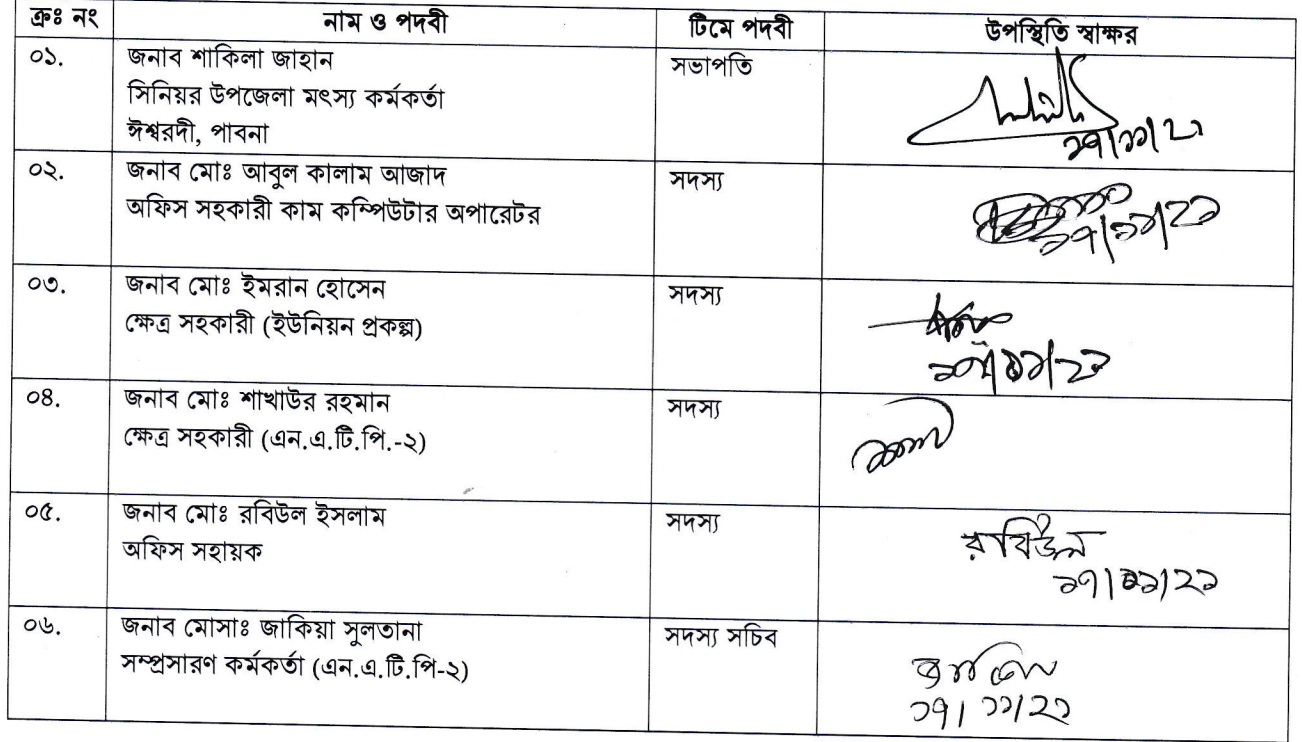 ক্রঃ নং নাম ও পদবী টিমে পদবী উপস্থিতি স্বাক্ষর
০১. জনাব শাকিলা জাহান সভাপতি
সিনিয়র উপজেলা মৎস্য কর্মকর্তা
ঈশ্বরদী, পাবনা
১৭/১১/২১
০২. জনাব মোঃ আবুল কালাম আজাদ সদস্য
অফিস সহকারী কাম কম্পিউটার অপারেটর
১৭/১১/২১
০৩. জনাব মোঃ ইমরান হোসেন সদস্য
ক্ষেত্র সহকারী (ইউনিয়ন প্রকল্প)
১৭/১১/২১
০৪. জনাব মোঃ শাখাউর রহমান সদস্য
ক্ষেত্র সহকারী (এন.এ.টি.পি.-২)
০৫. জনাব মোঃ রবিউল ইসলাম সদস্য
অফিস সহায়ক রবিউল
১৭/১১/২১
০৬. জনাব মোসাঃ জাকিয়া সুলতানা সদস্য সচিব
সম্প্রসারণ কর্মকর্তা (এন.এ.টি.পি-২)
১৭/১১/২১